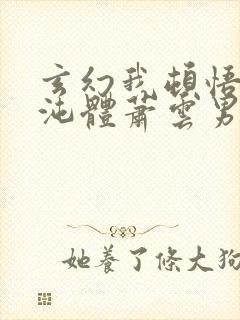 玄幻我頓悟
沌體蕭雲男
她養了條大狗